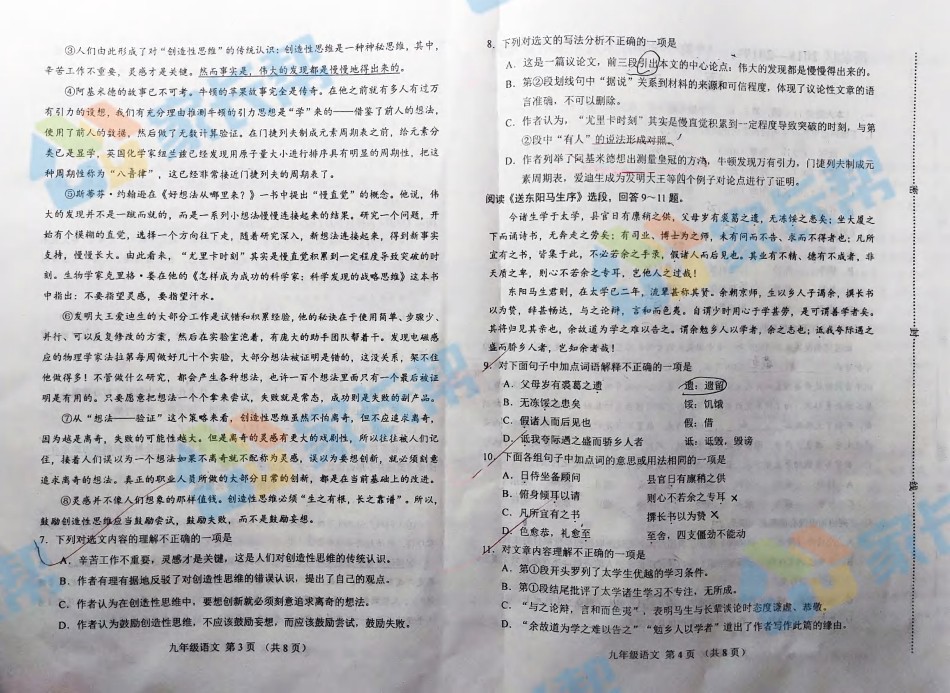 ③人们由此形成了对“创造性思维”的传统认识：创造性思维是一种神秘思维，其中，
辛苦工作不重要，灵感才是关键。然而事实是，伟大的发现都是慢慢地得出来的。
④阿基米德的故事已不可考。牛顿的苹果故事完全是传奇。在他之前就有多人有过万
有引力的设想，我们有充分理由推测牛顿的引力思想是“学”来的——借鉴了前人的想法，
使用了前人的数据，然后做了无数计算验证。在门捷列夫制成元素周期表之前，给元素分
类已是显学，英国化学家纽兰兹已经发现用原子量大小进行排序具有明显的周期性，把这
种周期性称为“八音律”，这已经非常接近门捷列夫的周期表了。
⑤斯蒂芬·约翰逊在《好想法从哪里来？》一书中提出“慢直觉”的概念。他说，伟
大的发现并不是一蹴而就的，而是一系列小想法慢慢连接起来的结果。研究一个问题，开
始有个模糊的直觉，选择一个方向往下走，随着研究深入，新想法连接起来，得到新事实
支持，慢慢长大。由此看来，“尤里卡时刻”其实是慢直觉积累到一定程度导致突破的时
刻。生物学家克里格·娄在他的《怎样成为成功的科学家：科学发现的战略思维》这本书
中指出：不要指望灵感，要指望汗水。
⑥发明大王爱迪生的大部分工作是试错和积累经验，他的秘诀在于使用简单、步骤少、
并行、可以反复修改的方案，然后在实验室泡着，有庞大的助手团队帮着干。发现电磁感
应的物理学家法拉第每周做好几十个实验，大部分想法被证明是错的，这没关系，架不住
他做得多！不管做什么研究，都会产生各种想法，也许一百个想法里面只有一个最后被证
明是有用的。只要愿意把想法一个个拿来尝试，失败就是常态，成功则是失败的副产品。
⑦从“想法——验证”这个策略来看，创造性思维虽然不怕离奇，但不应追求离奇，
因为越是离奇，失败的可能性越大。但是离奇的灵感有更大的戏剧性，所以往往被人们记
住，接着人们误以为一个想法如果不离奇就不配称为灵感，误以为要想创新，就必须刻意
追求离奇的想法。真正的职业人员所做的大部分日常的创新，都是在当前基础上的改进。
⑧灵感并不像人们想象的那样值钱。创造性思维必须“生之有根，长之靠谱”。所以，
鼓励创造性思维应当鼓励尝试，鼓励失败，而不是鼓励妄想。
7．下列对选文内容的理解不正确的一项是
A．辛苦工作不重要，灵感才是关键，这是人们对创造性思维的传统认识。
B．作者有理有据地反驳了对创造性思维的错误认识，提出了自己的观点。
C．作者认为在创造性思维中，要想创新就必须刻意追求离奇的想法。
D．作者认为鼓励创造性思维，不应该鼓励妄想，而应该鼓励尝试，鼓励失败。
九年级语文 第 3 页 （共 8 页）
8．下列对选文的写法分析不正确的一项是
A．这是一篇议论文，前三段引出本文的中心论点：伟大的发现都是慢慢得出来的。
B．第②段划线句中“据说”关系到材料的来源和可信程度，体现了议论性文章的语
言准确，不可以删除。
C．作者认为，“尤里卡时刻”其实是慢直觉积累到一定程度导致突破的时刻，与第
②段中“有人”的说法形成对照。
D．作者列举了阿基米德想出测量皇冠的方法，牛顿发现万有引力，门捷列夫制成元
素周期表，爱迪生成为发明大王等四个例子对论点进行了证明。
阅读《送东阳马生序》选段，回答 9～11 题。
今诸生学于太学，县官日有廪稍之供，父母岁有裘葛之遗，无冻馁之患矣；坐大厦之
下而诵诗书，无奔走之劳矣；有司业、博士为之师，未有问而不告、求而不得者也；凡所
宜有之书，皆集于此，不必若余之手录，假诸人而后见也。其业有不精、德有不成者，非
天质之卑，则心不若余之专耳，岂他人之过哉！
东阳马生君则，在太学已二年，流辈甚称其贤。余朝京师，生以乡人子谒余，撰长书
以为贽，辞甚畅达，与之论辩，言和而色夷。自谓少时用心于学甚劳，是可谓善学者矣。
其将归见其亲也，余故道为学之难以告之。谓余勉乡人以学者，余之志也；诋我夸际遇之
盛而骄乡人者，岂知余者哉！
9．对下面句子中加点词语解释不正确的一项是
A．父母岁有裘葛之遗　遗：遗留
B．无冻馁之患矣　馁：饥饿
C．假诸人而后见也　假：借
D．诋我夸际遇之盛而骄乡人者　诋：诋毁，毁谤
10．下面各组句子中加点词的意思或用法相同的一项是
A．日侍坐备顾问　县官日有廪稍之供
B．俯身倾耳以请　则心不若余之专耳
C．凡所宜有之书　撰长书以为贽
D．色愈恭，礼愈至　至舍，四支僵劲不能动
11．对文章内容理解不正确的一项是
A．第①段开头罗列了太学生优越的学习条件。
B．第①段结尾批评了太学诸生学习不专注，无所成。
C．“与之论辩，言和而色夷”，表明马生与长辈谈论时态度谦虚、恭敬。
D．“余故道为学之难以告之”“勉乡人以学者”道出了作者写作此篇的缘由。
九年级语文 第 4 页 （共 8 页）
密
封
线
家长帮
家长帮
家长帮
家长帮